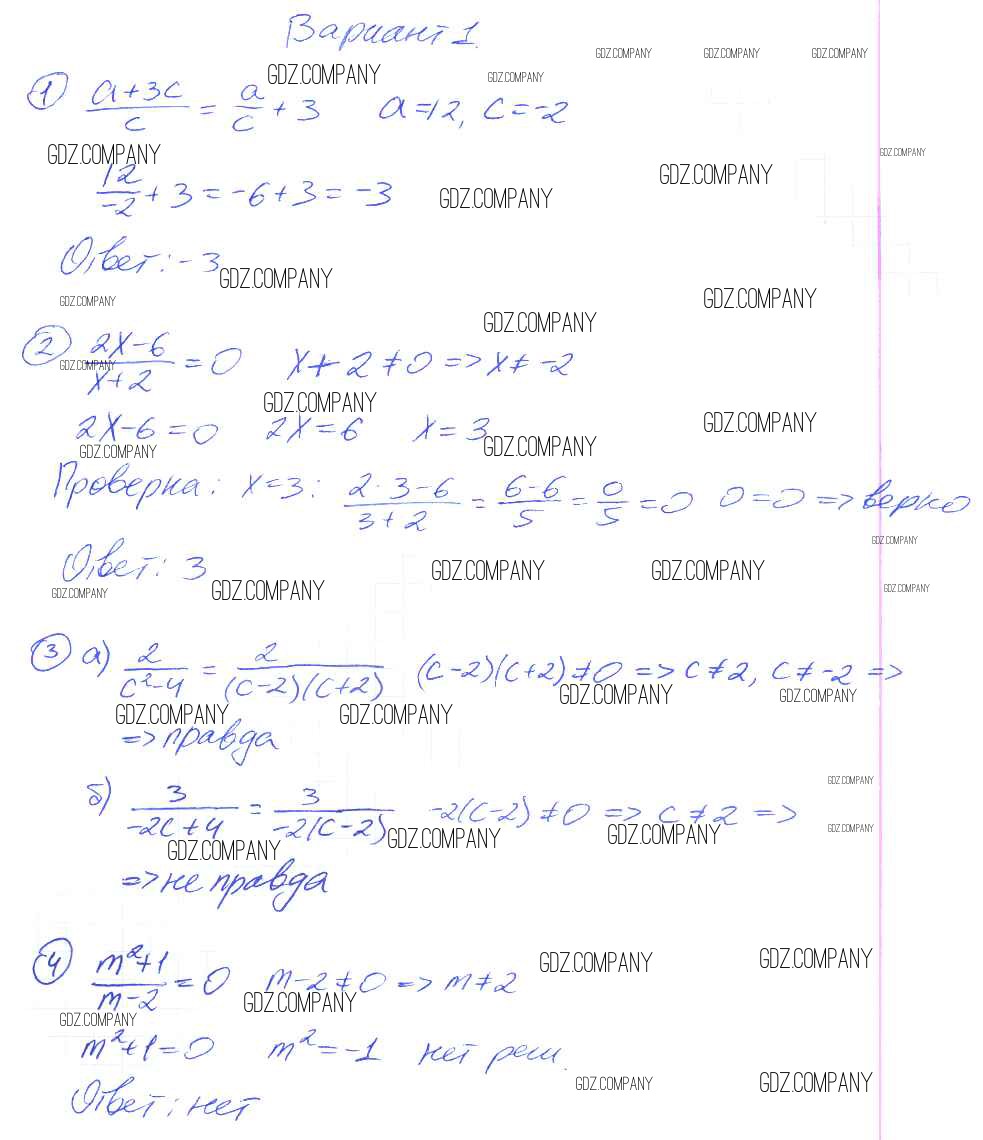 Вариант 1.
GDZ.COMPANY GDZ.COMPANY GDZ.COMPANY
GDZ.COMPANY GDZ.COMPANY
① (a+3c)/c = a/c + 3 a=12, c=-2
GDZ.COMPANY GDZ.COMPANY
12/-2 + 3 = -6+3 = -3 GDZ.COMPANY GDZ.COMPANY
Ответ: -3
GDZ.COMPANY
GDZ.COMPANY GDZ.COMPANY
GDZ.COMPANY
② (2x-6)/(x+2) = 0 x+2≠0 => x≠-2
GDZ.COMPANY
GDZ.COMPANY GDZ.COMPANY
2x-6=0 2x=6 x=3
GDZ.COMPANY GDZ.COMPANY
Проверка: x=3: (2·3-6)/(3+2) = (6-6)/5 = 0/5 = 0 0=0 => верно
GDZ.COMPANY
Ответ: 3 GDZ.COMPANY GDZ.COMPANY
GDZ.COMPANY GDZ.COMPANY GDZ.COMPANY
③ а) 2/(c²-4) = 2/((c-2)(c+2)) (c-2)(c+2)≠0 => c≠2, c≠-2 =>
GDZ.COMPANY GDZ.COMPANY GDZ.COMPANY GDZ.COMPANY
=> правда
GDZ.COMPANY
б) 3/(-2c+4) = 3/(-2(c-2)) -2(c-2)≠0 => c≠2 =>
GDZ.COMPANY GDZ.COMPANY GDZ.COMPANY GDZ.COMPANY
=> не правда
④ (m²+1)/(m-2) = 0 m-2≠0 => m≠2
GDZ.COMPANY GDZ.COMPANY
GDZ.COMPANY GDZ.COMPANY
m²+1=0 m²=-1 нет реш.
GDZ.COMPANY GDZ.COMPANY
Ответ: нет